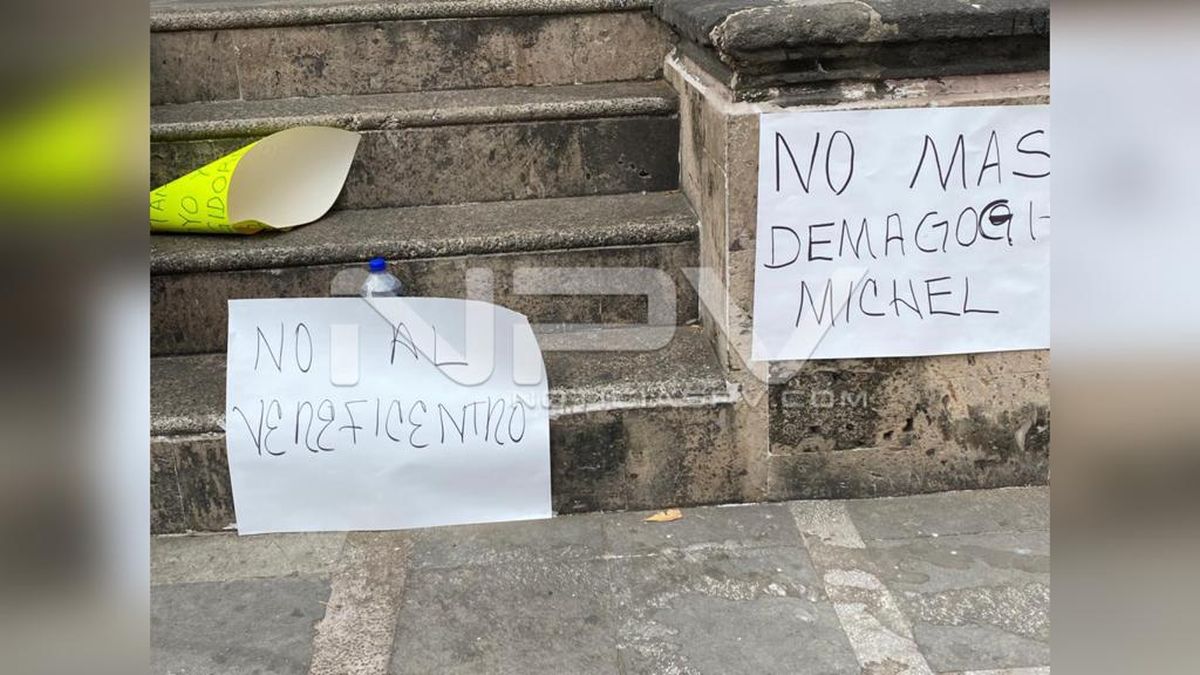 NO MAS
DEMAGOGI
MICHEL
NO AL
VEREFICENTRO
YO Y
NPV
NOTICIASPV.COM